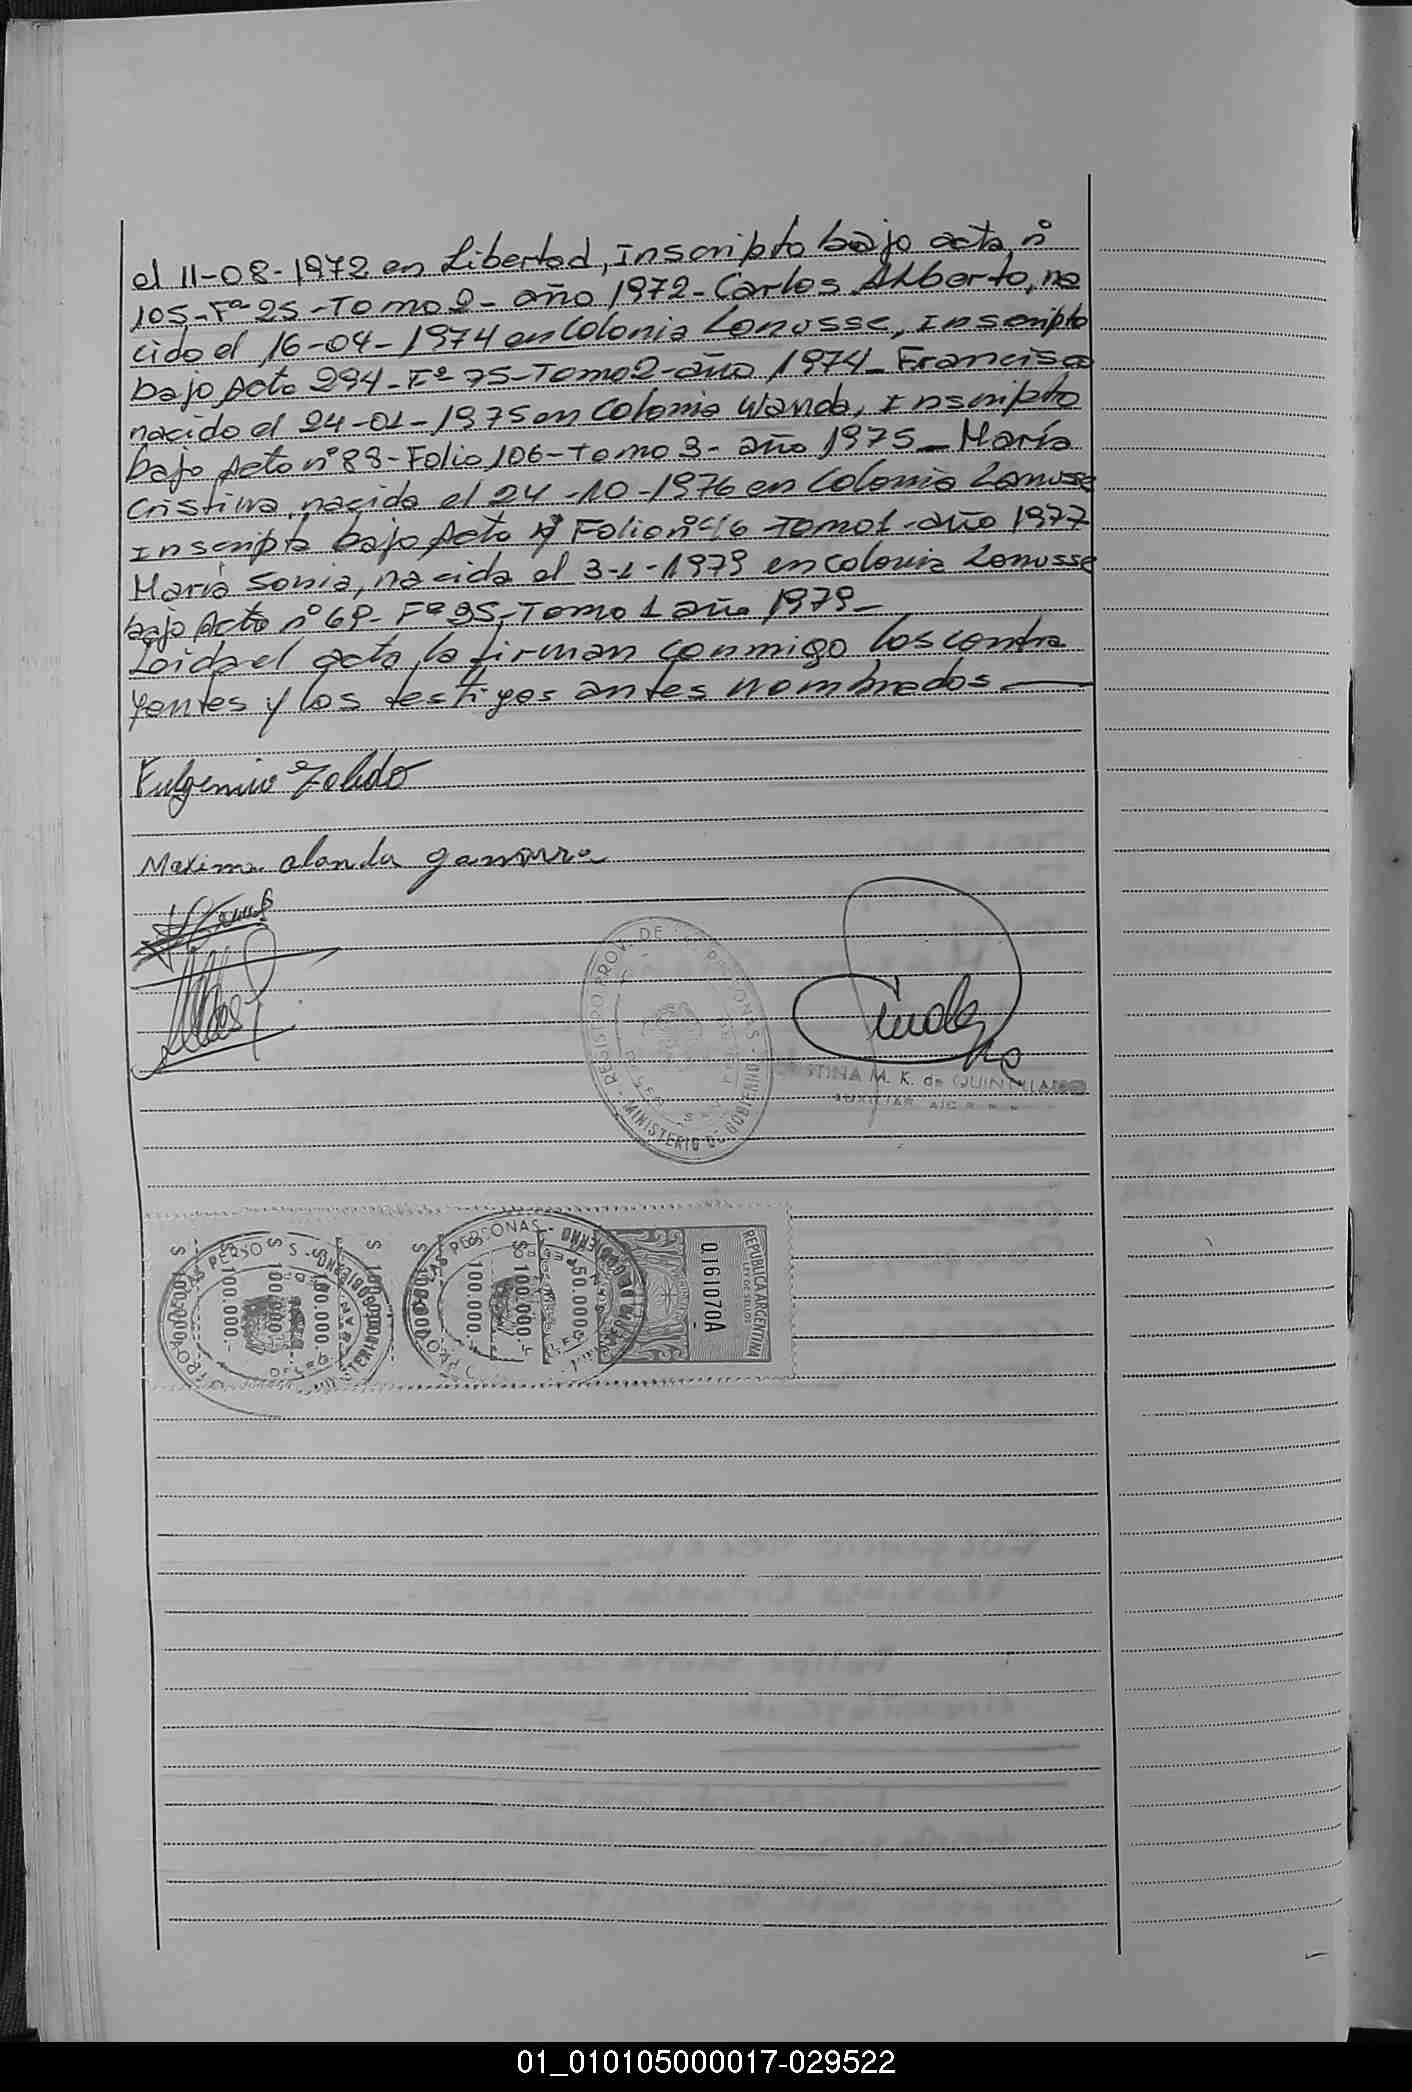 el 11-08-1972 en Libertad, Inscripto bajo acta nº
105-Fº 25-Tomo 2- año 1972- Carlos Alberto, na
cido el 16-04-1974 en Colonia Lanusse, Inscripto
bajo Acta 294-Fº 75-Tomo 2-año 1974- Francisco
nacido el 24-01-1975 en Colonia Wanda, Inscripto
bajo Acta nº 83-Folio 106-Tomo 3- año 1975- María
Cristina, nacida el 24-10-1976 en Colonia Lanusse
Inscripta bajo Acta Folio nº 46 Tomo 1-año 1977
María Sonia, nacida el 3-1-1979 en Colonia Lanusse
bajo Acta nº 69- Fº 35-Tomo 1 año 1979-
Leida el acta, la firman conmigo los contra
yentes y los testigos antes nombrados
Fulgencio Toledo
Maxima Olanda gamarra
REGISTRO PROV. DE LAS PERSONAS - MINISTERIO DE GOBIERNO
M. K. de QUINTILLANO
AUXILIAR
REPUBLICA ARGENTINA
LEY DE SELLOS
0.161070A
$ 50.000
$ 100.000.-
$ 100.000.-
$ 100.000.-
$ 100.000.-
$ 100.000.-
01_010105000017-029522